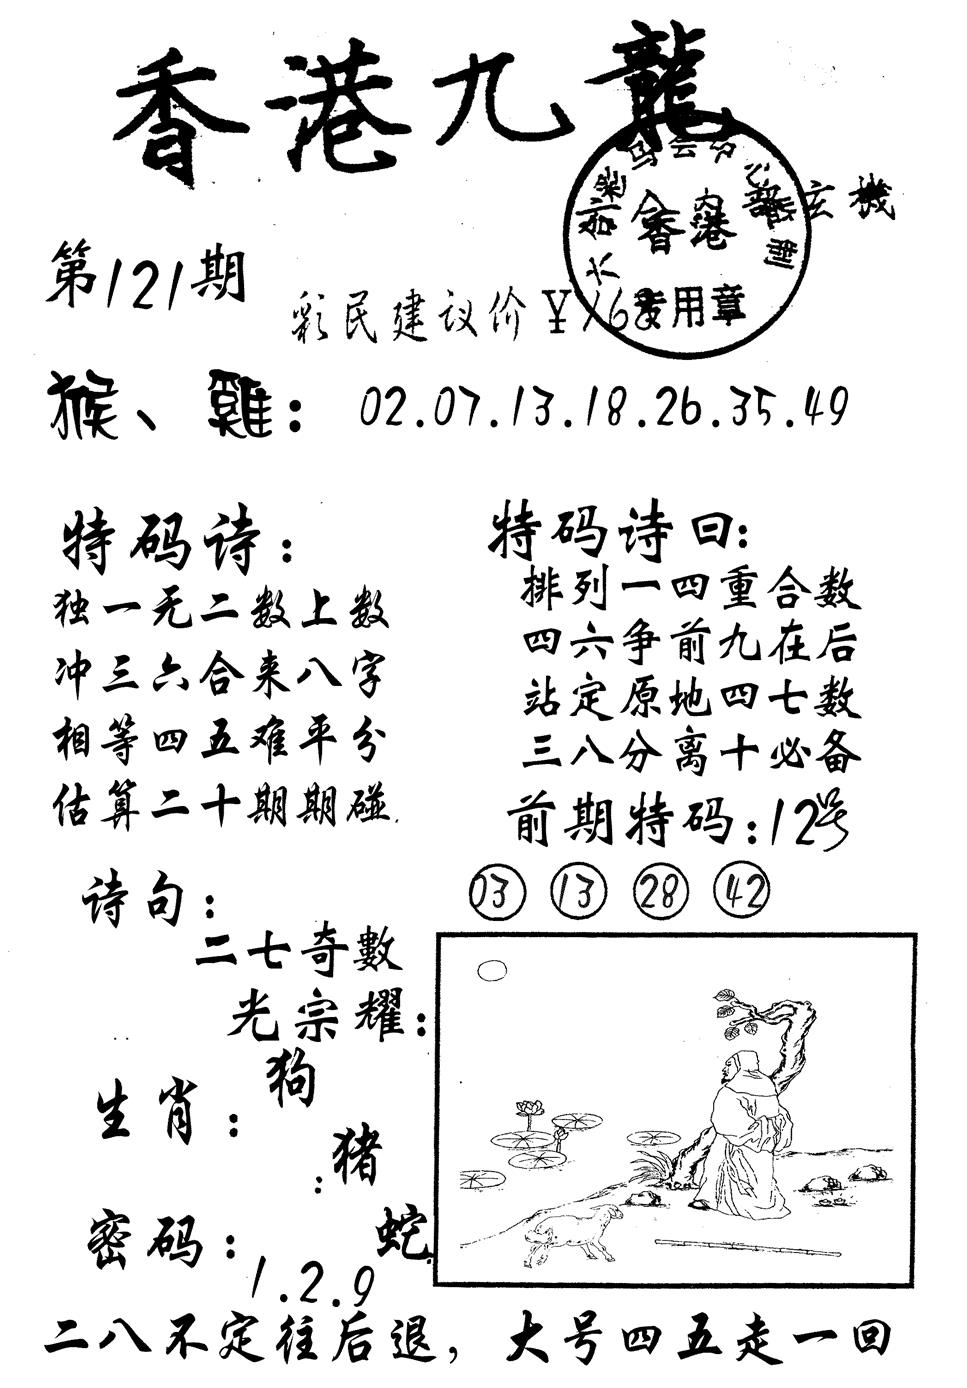 香港九龍
玄機
香港
专用章
第121期
彩民建议价¥168
猴、雞：02.07.13.18.26.35.49
特码诗：
独一无二数上数
冲三六合来八字
相等四五难平分
估算二十期期碰
特码诗曰：
排列一四重合数
四六争前九在后
站定原地四七数
三八分离十必备
前期特码：12号
03 13 28 42
诗句：
二七奇數
光宗耀：
生肖：
狗
猪
蛇
密码：
1.2.9
二八不定往后退，大号四五走一回